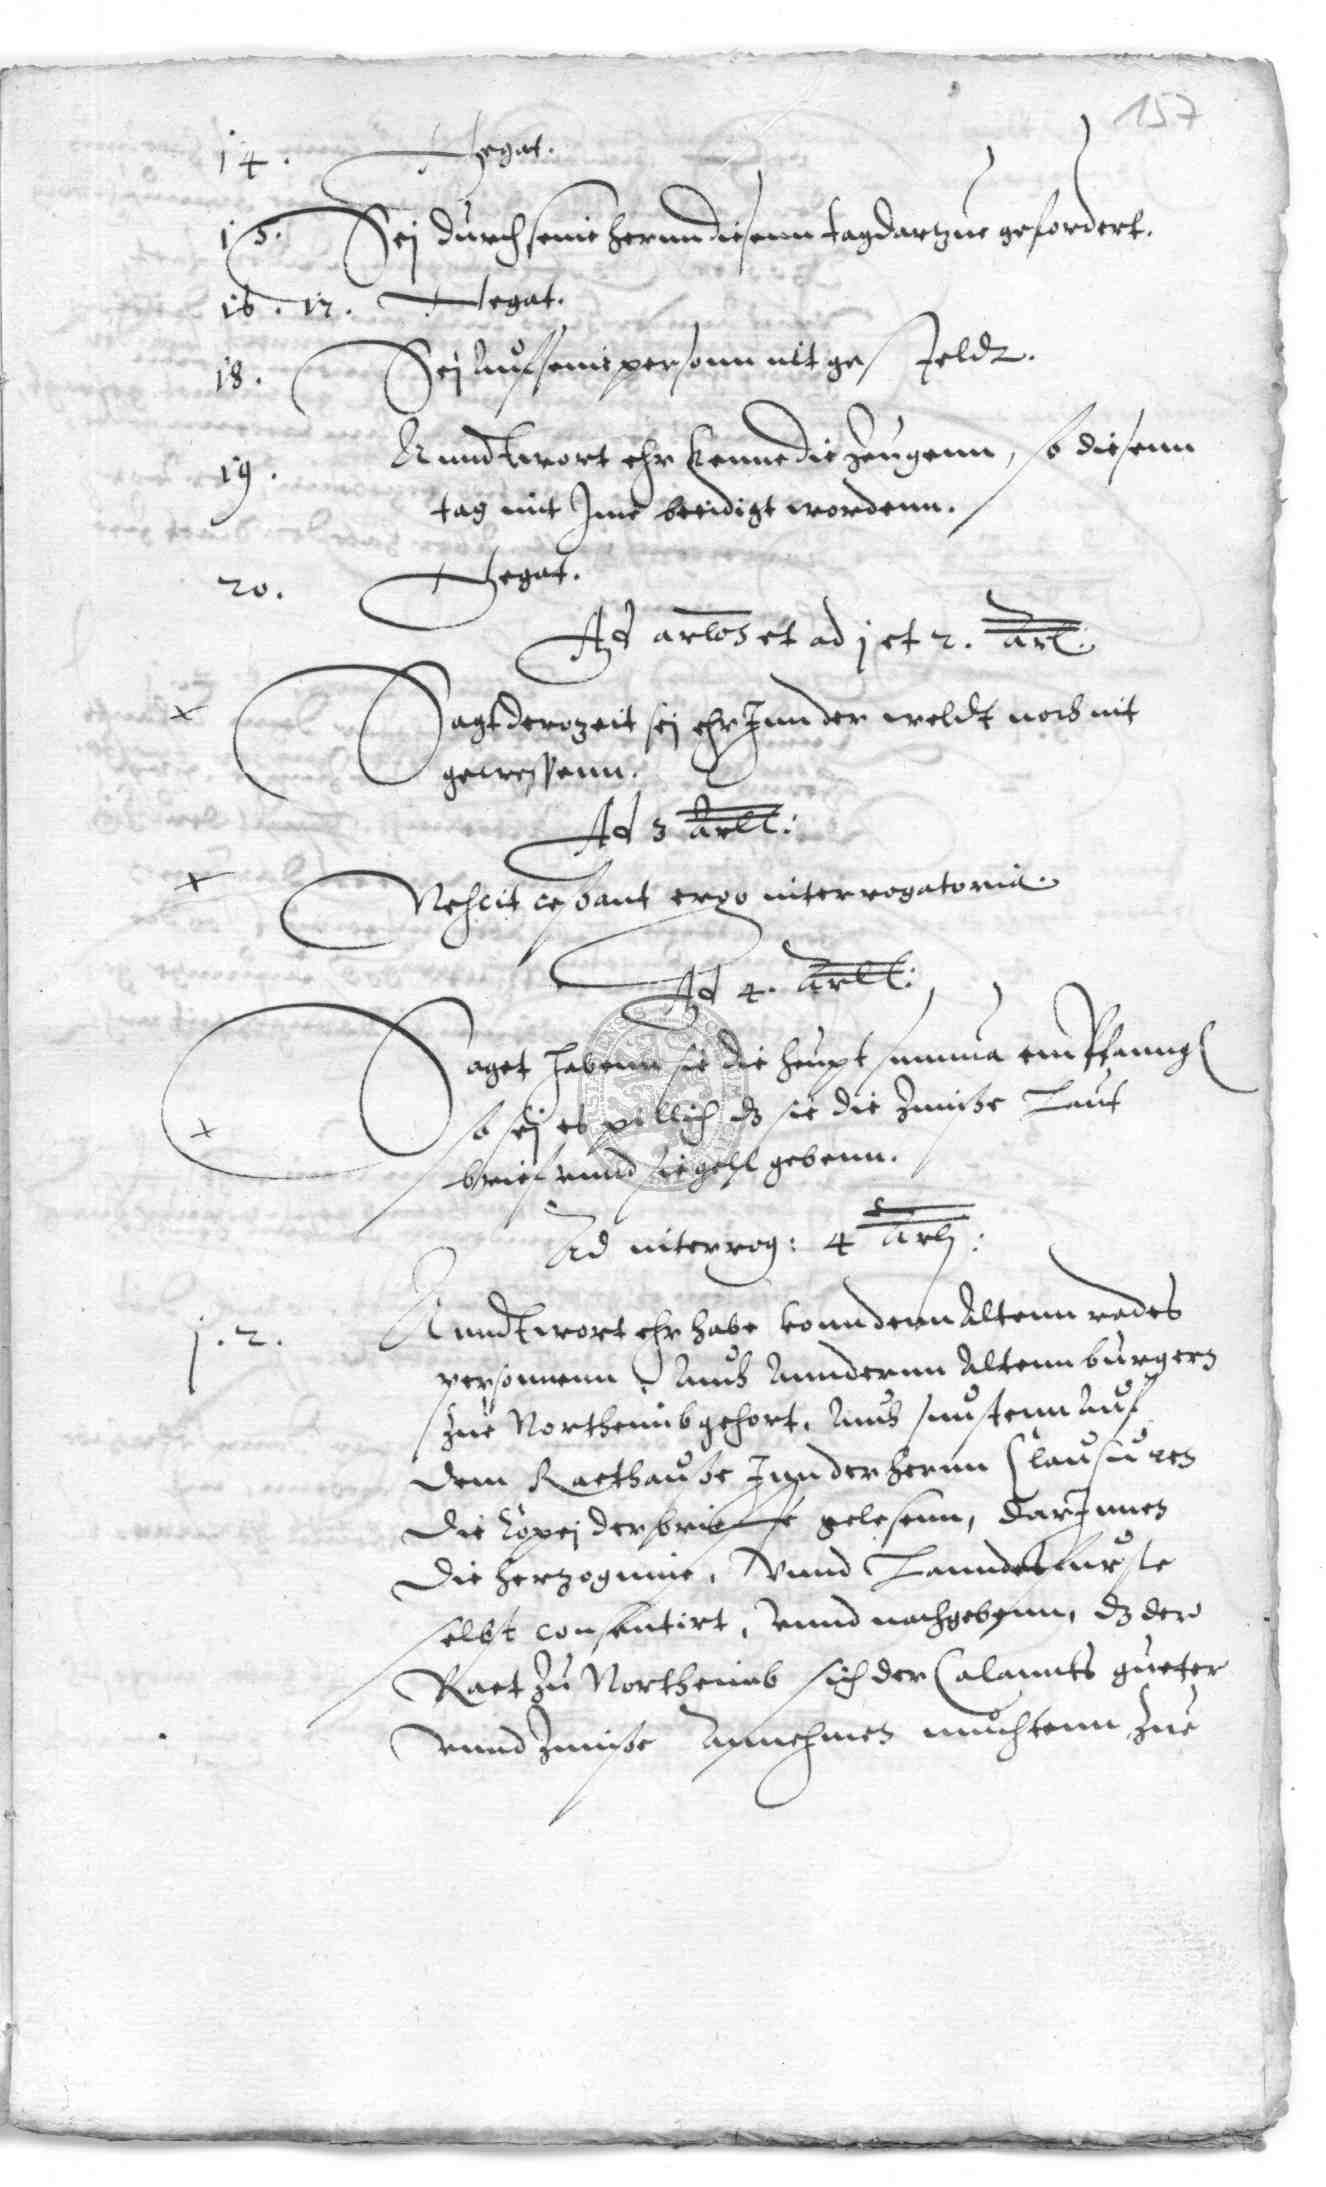 157
14. Negat.
15. Sej durch seine herrnn diesenn tag dartzue gefordert.
16. 17. Negat.
18. Sej auf seine personn nit gesteldt.
19. Anndtwort ehr kenne die zeugenn, so diesenn
tag mit Jme beeidigt wordenn.
20. Negat.
Ad arlos et ad j et 2. Arl:
Sagt derozeit sej ehr Jnn der weldt noch nit
gewessenn.
Ad 3 Arll:
Nescit cessant ergo interrogatoria.
Ad 4. Arll:
Saget habenn sie die heupt summa empfanng
so sej es pillich dz sie die Zinnße Laut
brief unnd siegell gebenn.
Ad interrog: 4 Arlj:
j. 2. Anndtwort ehr habe vonn denn Altenn rades
personnenn, Auch Anndernn Altenn burgern
zue Northeimb gehort, Auch sunstenn Auf
dem Raethauße Jnn der herrnn Clausuren
die Copej der brieffe gelesenn, darJnnen
die hertzoginne, Vnnd Lanndesfurste
selbst consentirt, vnnd nachgebenn, dz der
Raet zu Northeimb sich der Calannts gueter
vnnd Zinnße Annehmen muchtenn Zue